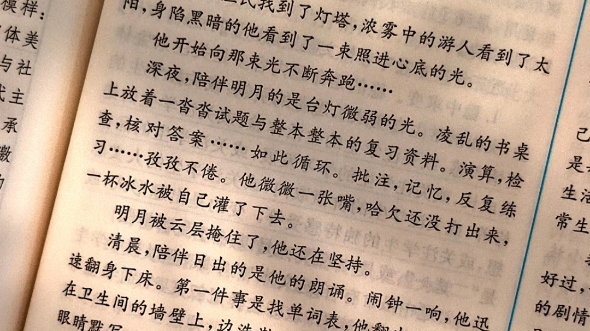 民找到了灯塔，浓雾中的游人看到了太
阳，身陷黑暗的他看到了一束照进心底的光。
他开始向那束光不断奔跑……
深夜，陪伴明月的是台灯微弱的光。凌乱的书桌
上放着一沓沓试题与整本整本的复习资料。演算，检
查，核对答案……如此循环。批注，记忆，反复练
习……孜孜不倦。他微微一张嘴，哈欠还没打出来，
一杯冰水被自己灌了下去。
明月被云层掩住了，他还在坚持。
清晨，陪伴日出的是他的朗诵。闹钟一响，他迅
速翻身下床。第一件事是找单词表，他翻
在卫生间的墙壁上，边洗
眼睛默写
模样：
体美
与社
主
承
的
己
是
生活
常生
好过，
的剧情